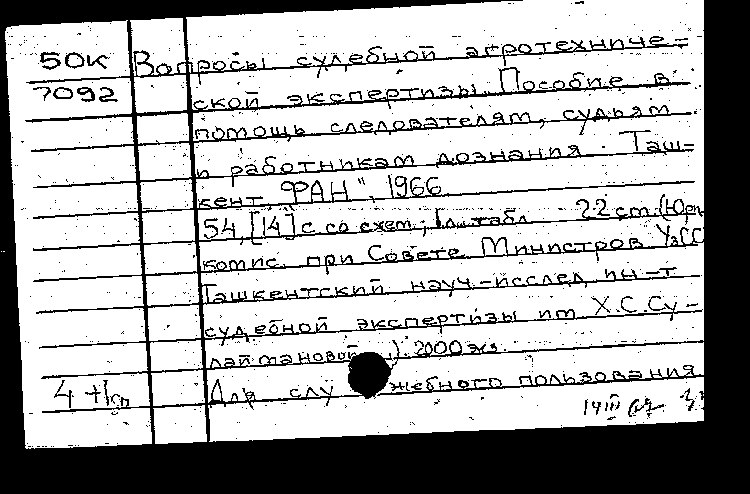 50К Вопросы судебной агротехниче=
7092 ской экспертизы. Пособие в
помощь следователям, судьям
и работникам дознания. Таш=
кент, "ФАН", 1966.
54, [14] с со схем.; 1 л. табл. 22 см. (Юри
комис. при Совете Министров УзСС
Ташкентский науч.-исслед. ин-т
судебной экспертизы им. Х.С.Су-
лаймановой). 2000 экз.
4 + Для служебного пользования
14 III